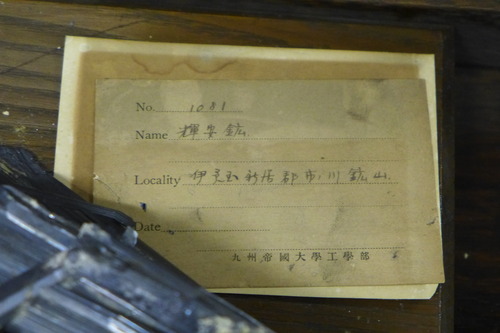 No. 1081
Name 輝安鉱
Locality 伊予国新居郡市ノ川鉱山
Date
九州帝國大學工學部